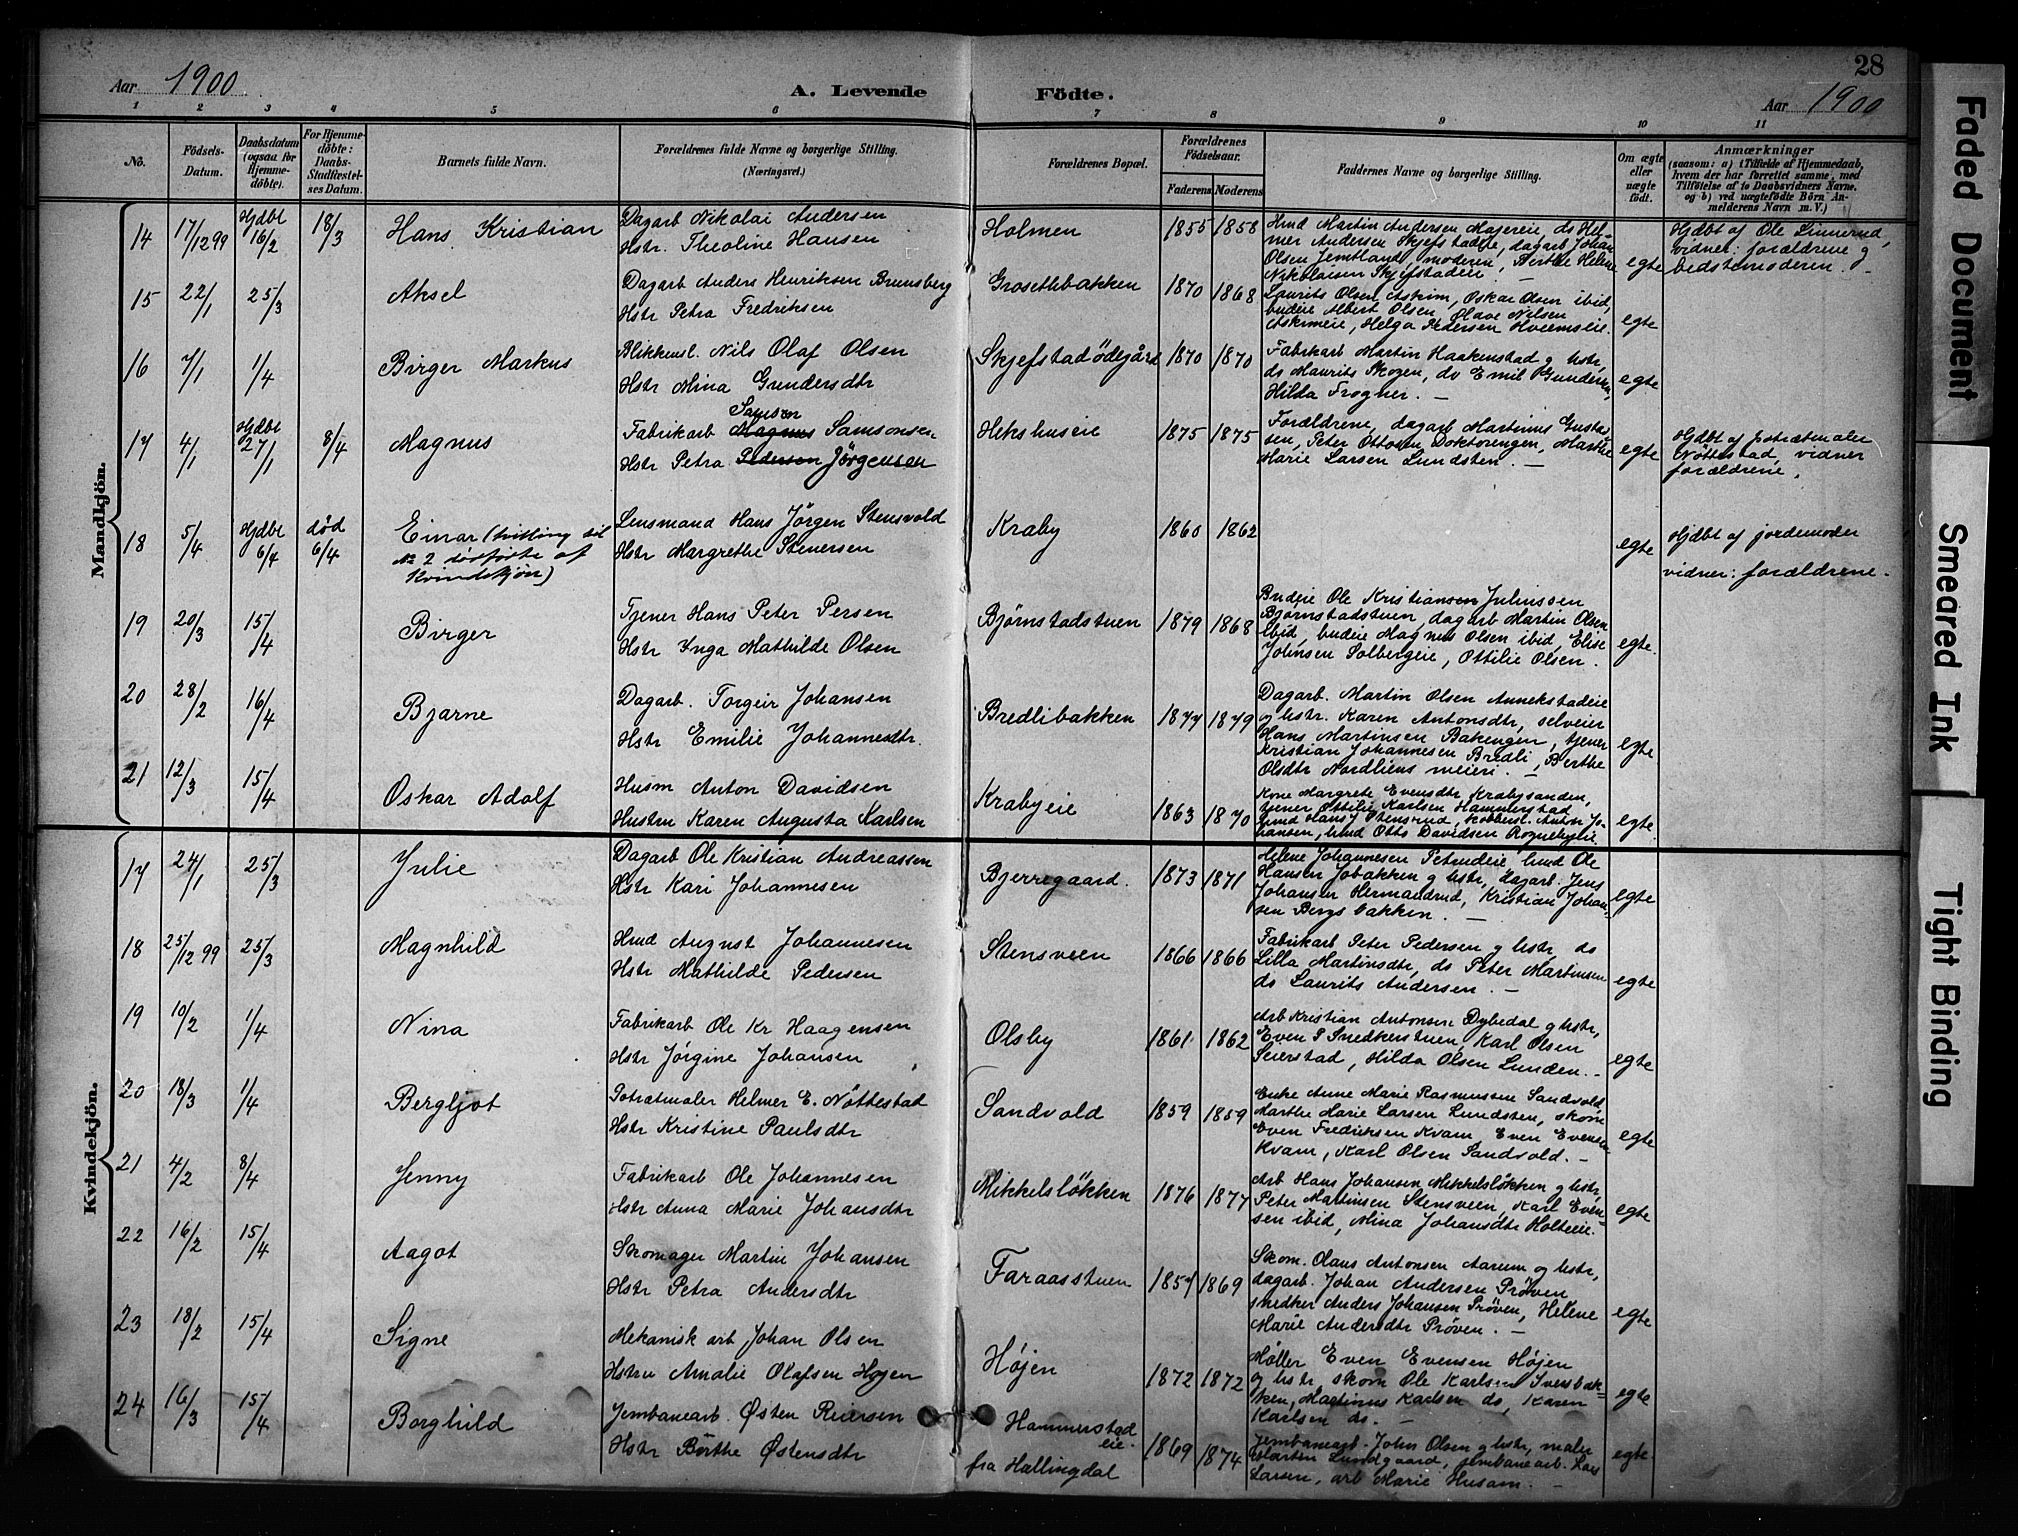 28
Aar 1900
A. Levende Födte.
Aar 1900
1 2 3 4 5 6 7 8 9 10 11
No.
Födsels-
Datum.
Daabsdatum
(ogsaa for
Hjemme-
döbte).
For Hjemme-
döbte:
Daabs-
Stadfæstel-
ses Datum.
Barnets fulde Navn.
Forældrenes fulde Navne og borgerlige Stilling.
(Næringsvei.)
Forældrenes Bopæl.
Forældrenes
Födselsaar.
Faderens Moderens
Faddernes Navne og borgerlige Stilling.
Om ægte
eller
uægte
födt.
Anmærkninger
(saasom: a) i Tilfælde af Hjemmedaab,
hvem der har forrettet samme, med
Tilföielse af to Daabsvidners Navne.
og b) ved uægtefödte Börn An-
melderens Navn m. V.)
Mandkjön.
14 17/12 99 Hjdbt 16/2 18/3 Hans Kristian
Dagarb Nikolai Andersen
Hstr. Theoline Hansen
Holmen 1855 1858
Hmd Martin Andersen Majereie, ds Hel-
mer Andersen Skjefstadeie, dagarb Johan
Olsen Jemtland, moderen, Berthe Helene
Nikolaisen Skjefstadeie
egte
Hjdbt af Ole Linnerud,
vidner: forældrene g
bedstemoderen. -
15 22/1 25/3 Aksel
Dagarb Anders Henriksen Brunsberg
Hstr Petra Fredriksen
Grosethbakken 1870 1868
Laurits Olsen Askim, Oskar Olsen ibid,
budeie Albert Olsen, Olave Nilsen
Askimeie, Helga Pedersen Hveemseie.
egte
16 7/1 1/4 Birger Markus
Blikkensl. Nils Olaf Olsen
Hstr Mina Gundersdtr
Skjefstadödegård 1870 1870
Fabrikarb Martin Haakenstad g hstr,
ds Maurits Skogen, ds Emil Gundersen,
Hilda Frogner. -
egte
17 4/1 Hjdbt 27/1 8/4 Magnus
Samson
Fabrikarb Magnus Samsonsen
Hstr Petra Pedersen Jörgensen
Hekshuseie 1875 1875
Forældrene, dagarb Martinius Gusta-
sen, Peter Ottosen Doktorengen, Marthe
Marie Larsen Lundsten. -
egte
Hjdbt af potrætmaler
Nöttestad, vidner
forældrene.
18 5/4 Hjdbt 6/4 död 6/4 Einar (tvilling til
No 2 dödfödte af
Kvindekjön)
Lensmand Hans Jörgen Stensvold
Hstr Margrethe Stenersen
Kraby 1860 1862
egte
Hjdbt af jordemoder
vidner: forældrene.
19 20/3 15/4 Birger
Tjener Hans Peter Persen
Hstr Inga Mathilde Olsen
Bjørnstadstuen 1879 1868
Budeie Ole Kristiansen Juliussen
Bjørnstadstuen, dagarb Martin Olsen
ibid, budeie Magnus Olsen ibid, Elise
Johnsen Solbergeie, Ottilie Olsen.
egte.
20 28/2 16/4 Bjarne
Dagarb. Torgeir Johansen
Hstr Emilie Johannesdtr.
Bredlibakken 1877 1879
Dagarb. Martin Olsen Annekstadeie
g hstr. Karen Antonsdtr, selveier
Hans Martinsen Bakengen, tjener
Kristian Johannesen Bredli, Berthe
Olsdtr Nordliens meieri. -
egte
21 12/3 15/4 Oskar Adolf
Husm Anton Davidsen
Hustru Karen Augusta Karlsen
Krabyeie 1863 1870
Kone Margrete Evensdtr Krabysanden,
tjener Ottilie Karlsen Hammerstad
hmd Hans J Stensrud, kobbersl. Anton Jo-
hansen, hmd Otto Davidsen Rognebyeie.
egte.
Kvindekjön.
17 24/1 25/3 Julie
Dagarb Ole Kristian Andreassen
Hstr Kari Johannesen
Bjerregaard. 1873 1871
Helene Johannesen Petrudeie hmd Ole
Hansen Jobakken g hstr, dagarb. Jens
Johansen Hermandrud, Kristian Johan-
sen Bergsbakken. -
egte
18 25/12 99 25/3 Magnhild
Hmd August Johannesen
Hstr Mathilde Pedersen
Stensveen 1866 1866
Fabrikarb Peter Pedersen g hstr, ds
Lilla Martinsdtr, ds Peter Martinsen
ds Laurits Andersen. -
egte
19 10/2 1/4 Nina
Fabrikarb Ole Kr Haagensen
Hstr Jörgine Johansen
Olsby 1861 1862
Arb Kristian Antonsen Dybedal g hstr,
Even P Snedkerstuen, Karl Olsen
Seierstad, Hilda Olsen Lunden. -
egte
20 18/3 1/4 Bergljot
Potrætmaler Helmer E. Nöttestad
Hstr Kristine Paulsdtr
Sandvold 1859 1859
Enke Anne Marie Rasmussen Sandvold
Marthe Marie Larsen Lundsten, skom
Even Fredriksen Kvam, Even Evensen
Kvam, Karl Olsen Sandvold. -
egte
21 4/2 8/4 Jenny
Fabrikarb Ole Johannesen
Hstr Anna Marie Johansdtr
Mikkelsløkken 1876 1877
Arb Hans Johansen Mikkelsløkken g hstr,
Peter Martinsen Stensveen, Karl Even-
sen ibid, Mina Johansdtr Holteeie.
egte
22 16/2 15/4 Aagot
Skomager Martin Johansen
Hstr Petra Andersdtr
Faraasstuen 1857 1869
Skom. Olaus Antonsen Aarum og hstr,
dagarb. Johan Andersen Prøven
snedker Anders Johansen Prøven, Helene
Marie Andersdtr Prøven. -
egte
23 18/2 15/4 Signe
Mekanisk arb Johan Olsen
Hstru Amalie Olafsen Højen
Højen 1872 1872
Møller Even Evensen Højen
og hstr, skom Ole Karlsen Iversbak-
ken, Martinus Karlsen ds, Karen
Karlsen ds. -
egte
24 16/3 15/4 Borghild
Jernbanearb. Østen Reiersen
Hstr Börthe Østensdtr
Hammerstad
eie.
fra Hallingdal
1869 1874
Jernbanearb. John Olsen g hstr, maler
Marten Lundgaard, jernbanearb. Lars
Larsen, arb Marie Husom. -
egte.
Faded Document
Smeared Ink
Tight Binding